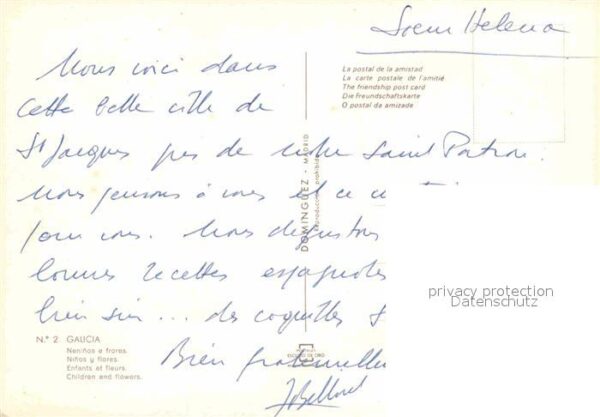 Soeur Helena
Nous voici dans
cette belle ville de
St Jacques pres de notre Saint Patron.
Nous pensons à vous et ce
pour vous. Nous dégustons
bonnes recettes espagnoles
bien sûr ... des coquilles S
Bien fraternelle
La postal de la amistad
La carte postale de l'amitié
The friendship post card
Die Freundschaftskarte
O postal da amizade
DOMINGUEZ - MADRID
reproducción prohibida
N.º 2 GALICIA
Neniños e frores.
Niños y flores.
Enfants et fleurs.
Children and flowers.
ESCUDO DE ORO
privacy protection
Datenschutz